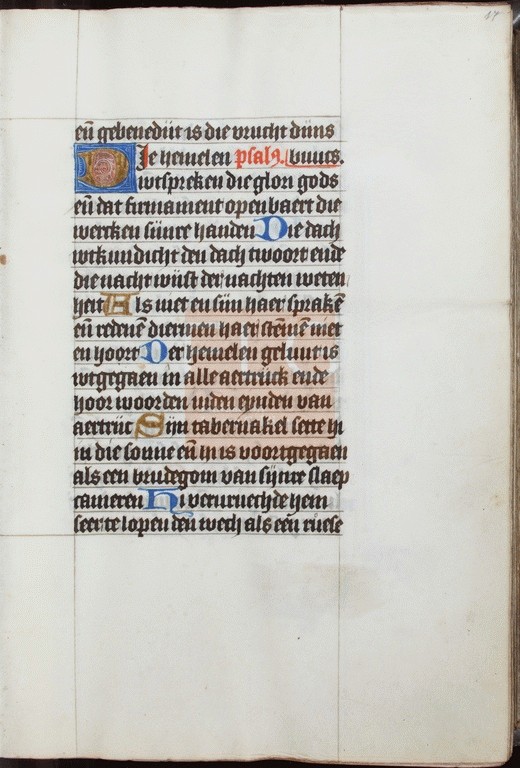 17
eñ gebenedijt is die vrucht dijns
Die hemelen psalm.
wtspreken die glori gods
eñ dat firmament openbaert die
wercken sijnre handen Die dach
wtkundicht den dach twoort ende
die nacht wijst der nachten weten
heit Als niet en sijn haer sprakē
eñ redenē diermen haer stēmē niet
en hoort Der hemelen geluut is
wtgegaen in alle aertrijck ende
hoor woorden inden eynden van
aertrijc Sijn tabernakel sette hi
in die sonne eñ hi is voortgegaen
als een brudegom van sijnre slaep
cameren Hi vervruechde hem
seer te lopen den wech als een ruese